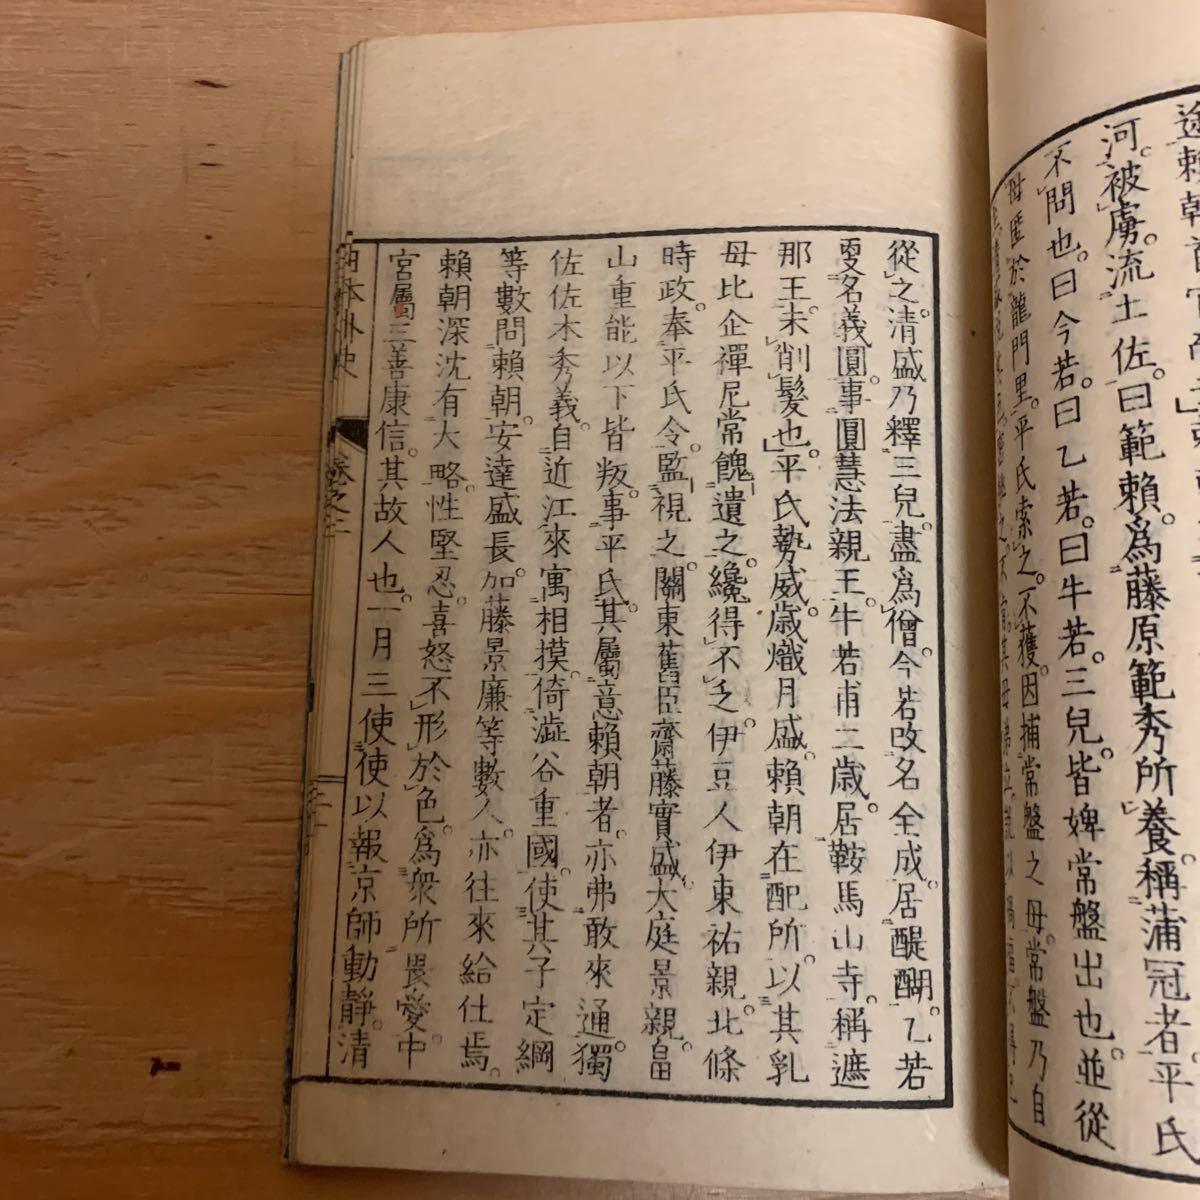 途賴朝
河。被虜。流土佐。曰範賴。爲藤原範秀所養。稱蒲冠者。平氏
不問也。曰今若。曰乙若。曰牛若。三兒皆婢常盤出也。並從
母匿於龍門里。平氏索之。不獲。因捕常盤之母。常盤乃自
從之。清盛乃釋三兒。盡爲僧。今若改名全成。居醍醐。乙若
更名義圓。事圓慧法親王。牛若甫二歲。居鞍馬山寺。稱遮
那王。未削髮也。平氏勢威。歲熾月盛。賴朝在配所。以其乳
母比企禪尼常餽遺之。纔得不乏。伊豆人伊東祐親。北條
時政。奉平氏令。監視之。關東舊臣。齋藤實盛。大庭景親。畠
山重能以下皆叛。事平氏。其屬意賴朝者。亦弗敢來通。獨
佐佐木秀義。自近江來寓相摸。倚澁谷重國。使其子定綱
等數問賴朝。安達盛長。加藤景廉等數人。亦往來給仕焉。
賴朝深沈有大略。性堅忍。喜怒不形於色。爲衆所畏愛。中
宮屬三善康信。其故人也。一月三使使以報京師動靜。清
日本外史 卷之二